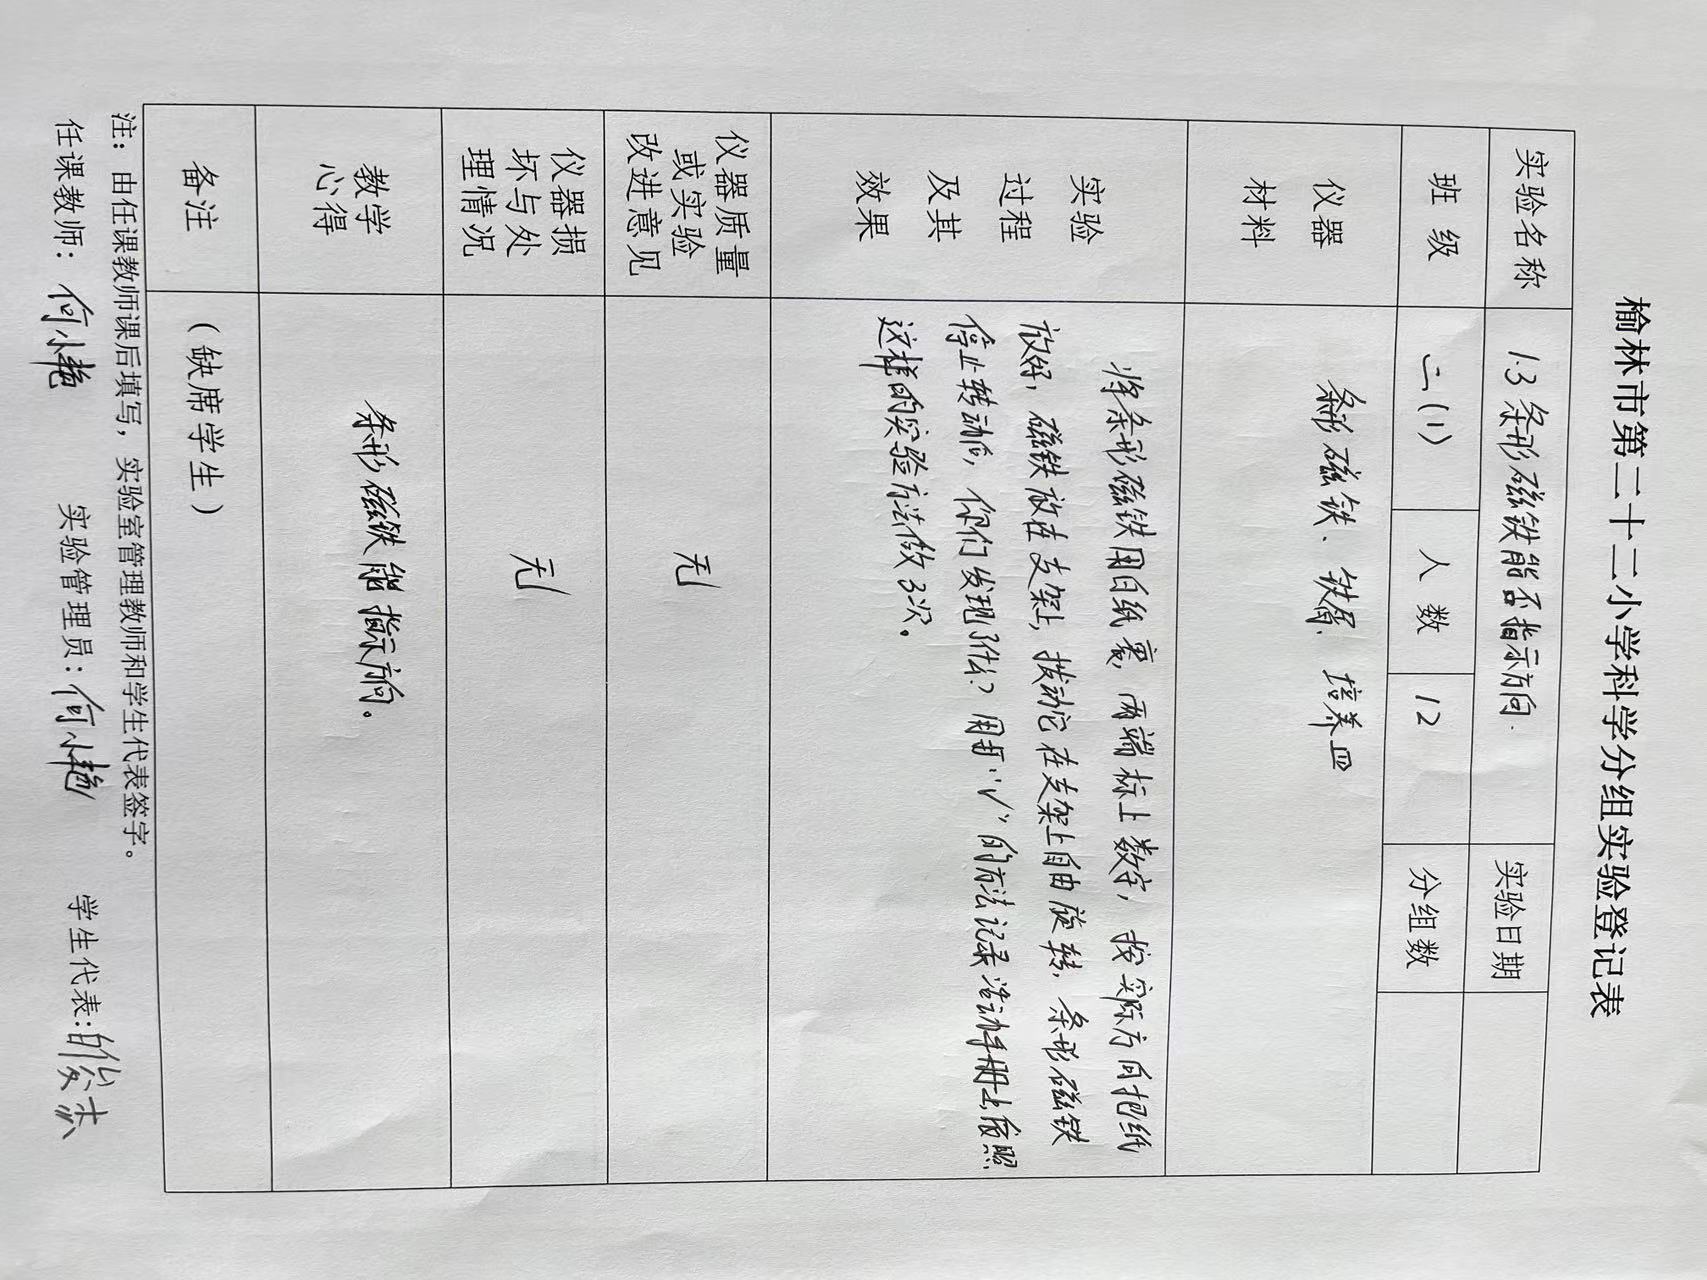 榆林市第二十二小学科学分组实验登记表
实验名称 1.3条形磁铁能否指示方向. 实验日期
班 级 二(1) 人 数 12 分组数
仪器
材料
条形磁铁、铁屑、培养皿
实验
过程
及其
效果
将条形磁铁用白纸裹,两端标上数字,按实际方向把纸
放好,磁铁放在支架上,拨动它在支架上自由旋转,条形磁铁
停止转动后,你们发现了什么?用打“√”的方法记录活动手册上,依照
这样的实验方法做3次。
仪器质量
或实验
改进意见
无
仪器损
坏与处
理情况
无
教学
心得
条形磁铁能指示方向。
备注 (缺席学生)
注:由任课教师课后填写,实验室管理教师和学生代表签字。
任课教师:何小艳 实验管理员:何小艳 学生代表: